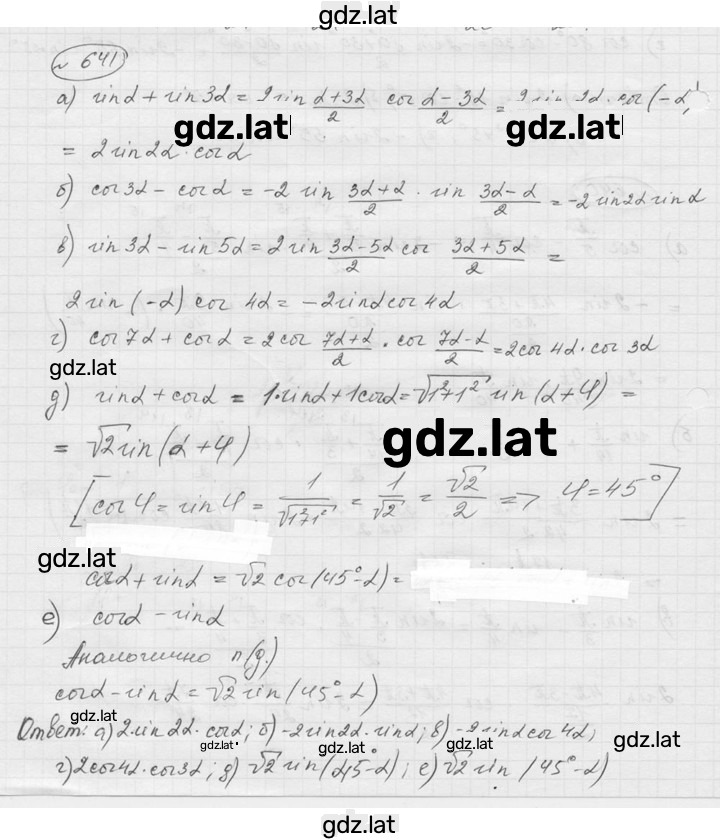 gdz.lat
№ 641
а) sinα + sin3α = 2sin (α+3α)/2 cos (α−3α)/2 = 2sin 2α · cos(−α)
gdz.lat gdz.lat
= 2sin2α · cosα
б) cos3α − cosα = −2 sin (3α+α)/2 · sin (3α−α)/2 = −2 sin2α sinα
в) sin 3α − sin 5α = 2 sin (3α−5α)/2 cos (3α+5α)/2 =
2sin (−α) cos 4α = −2sinα cos4α
г) cos7α + cosα = 2cos (7α+α)/2 · cos (7α−α)/2 = 2cos 4α · cos 3α
gdz.lat
д) sinα + cosα = 1·sinα + 1cosα = √(1²+1²) sin(α+φ) =
= √2 sin(α+φ)
gdz.lat
[cosφ = sinφ = 1/√(1²+1²) = 1/√2 = √2/2 => φ = 45°]
gdz.lat
cosα + sinα = √2 cos(45°−α) =
gdz.lat
е) cosα − sinα
Аналогично п(д.)
cosα − sinα = √2 sin(45°−α)
Ответ: а) 2sin2α · cosα; б) −2sin2α · sinα; в) −2sinα cos4α;
gdz.lat gdz.lat gdz.lat gdz.lat
г) 2cos4α · cos3α; д) √2 sin(45°−α); е) √2 sin(45°−α)
gdz.lat